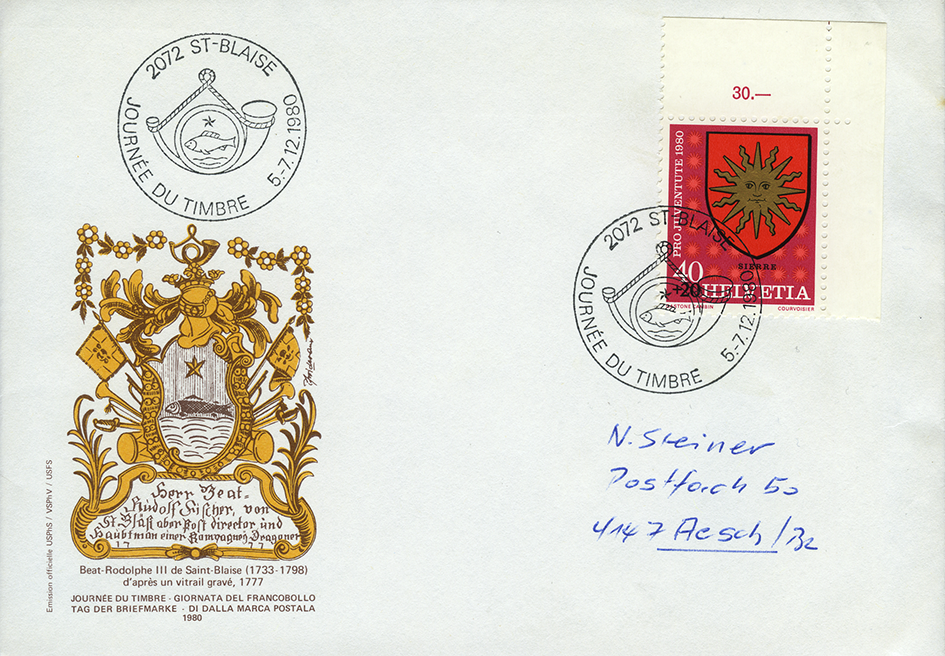 2072 ST-BLAISE
JOURNÉE DU TIMBRE
5.-7.12.1980
30.—
PRO JUVENTUTE 1980
SIERRE
40
+20
HELVETIA
GASTONE CAMBIN
COURVOISIER
2072 ST-BLAISE
JOURNÉE DU TIMBRE
5.-7.12.1980
N. Steiner
Postfach 50
4147 Aesch/BL
Herr Beat-
Rudolf Fischer, von
St. Bläsi aber Post director und
Haubtman einer Kompagneÿ Dragoner
17 77
Beat-Rodolphe III de Saint-Blaise (1733-1798)
d'après un vitrail gravé, 1777
JOURNÉE DU TIMBRE - GIORNATA DEL FRANCOBOLLO
TAG DER BRIEFMARKE - DI DALLA MARCA POSTALA
1980
Emission officielle USPhS / VSPhV / USFS